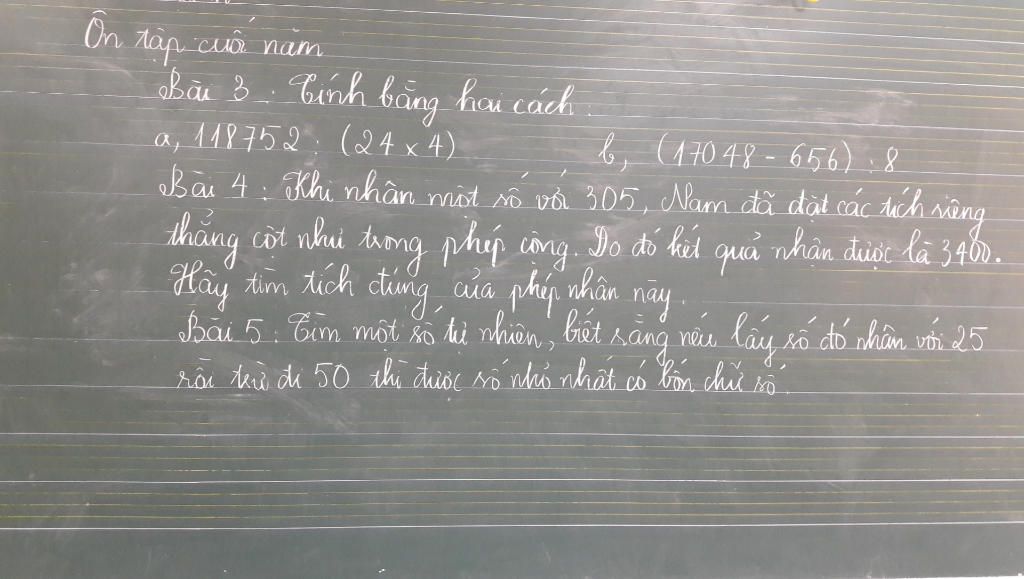 Ôn tập cuối năm
Bài 3 : Tính bằng hai cách :
a, 118752 : (24 x 4) b, (17048 - 656) : 8
Bài 4 : Khi nhân một số với 305, Nam đã đặt các tích riêng
thẳng cột như trong phép cộng. Do đó kết quả nhận được là 3400.
Hãy tìm tích đúng của phép nhân này.
Bài 5 : Tìm một số tự nhiên, biết rằng nếu lấy số đó nhân với 25
rồi trừ đi 50 thì được số nhỏ nhất có bốn chữ số.